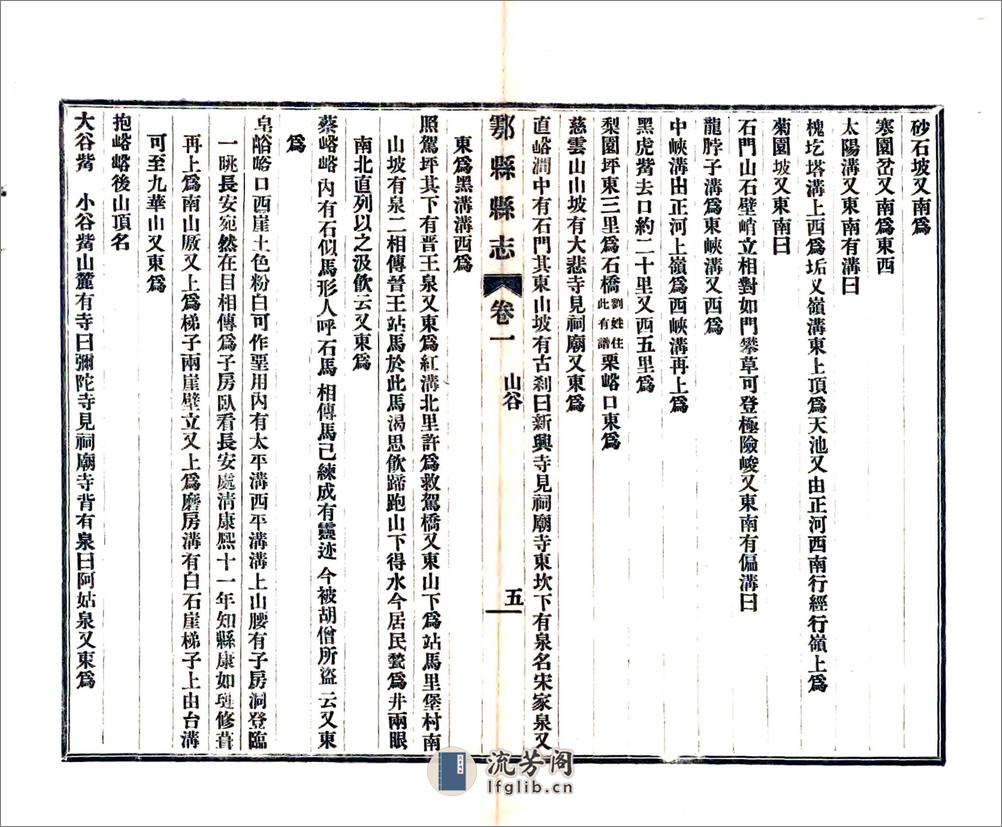 砂石坡又南爲
寨園岔又南爲東西
太陽溝又東南有溝曰
槐圪塔溝上西爲垢又嶺溝東上頂爲天池又由正河西南行經行嶺上爲
菊園坡又東南曰
石門山石壁峭立相對如門攀草可登極險峻又東南有偏溝曰
龍脖子溝爲東峽溝又西爲
中峽溝由正河上嶺爲西峽溝再上爲
黑虎觜去口約二十里又西五里爲
梨園坪東三里爲石橋劉姓住此有譜栗峪口東爲
慈雲山山坡有大悲寺見祠廟又東爲
直峪澗中有石門其東山坡有古刹曰新興寺見祠廟寺東坎下有泉名宋家泉又
鄠縣縣志 卷一 山谷 五
東爲黑溝溝西爲
照駕坪其下有晋王泉又東爲紅溝北里許爲救駕橋又東山下爲站馬里堡村南
山坡有泉二相傳晉王站馬於此馬渴思飮蹄跑山下得水今居民甃爲井兩眼
南北直列以之汲飮云又東爲
蔡峪峪內有石似馬形人呼石馬 相傳馬已練成有靈迹 今被胡僧所盜 云又東
爲
皂峪峪口西崖土色粉白可作堊用內有太平溝西平溝溝上山腰有子房洞登臨
一眺長安宛然在目相傳爲子房臥看長安處清康熙十一年知縣康如璉修葺
再上爲南山厫又上爲梯子兩崖壁立又上爲磨房溝有白石崖梯子上由台溝
可至九華山又東爲
抱峪峪後山頂名
大谷觜 小谷觜山麓有寺曰彌陀寺見祠廟寺背有泉曰阿姑泉又東爲
流芳阁
lfglib.cn